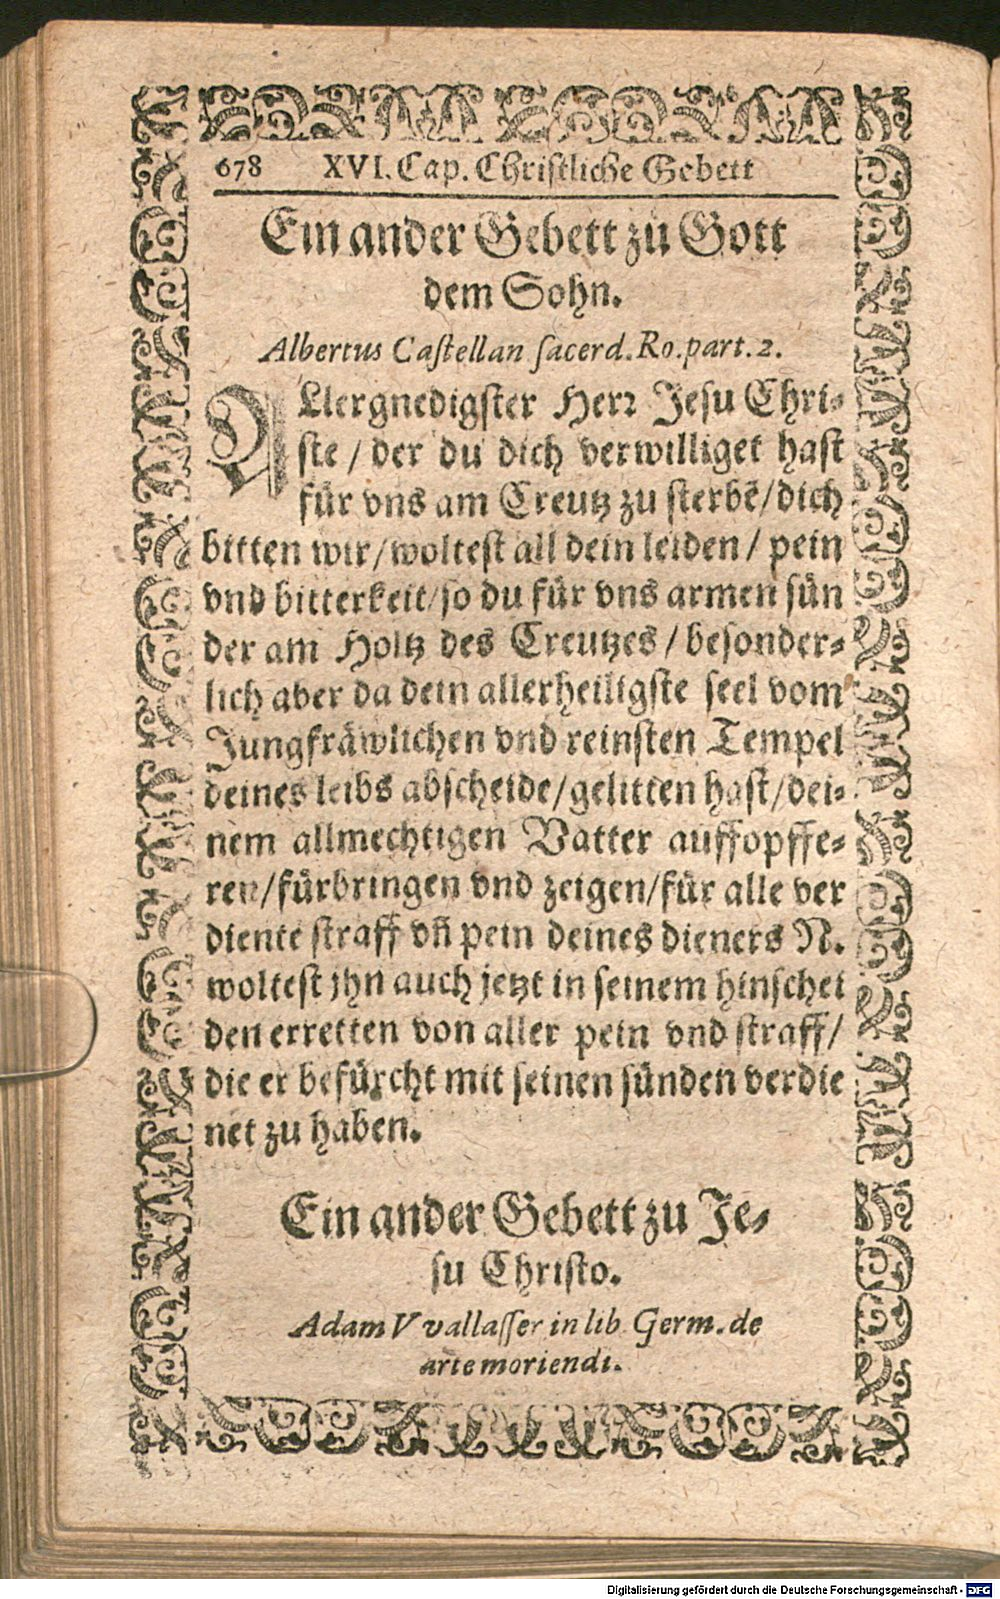 678 XVI. Cap. Christliche Gebett
Ein ander Gebett zu Gott
dem Sohn.
Albertus Castellan sacerd. Ro. part. 2.
ALlergnedigster Herr Jesu Chri-
ste / der du dich verwilliget hast
für vns am Creutz zu sterbē / dich
bitten wir / woltest all dein leiden / pein
vnd bitterkeit / so du für vns armen sün
der am Holtz des Creutzes / besonder-
lich aber da dein allerheiligste seel vom
Jungfräwlichen vnd reinsten Tempel
deines leibs abscheide / gelitten hast / dei-
nem allmechtigen Vatter auffopffe-
ren / fürbringen vnd zeigen / für alle ver
diente straff vñ pein deines dieners N.
woltest jhn auch jetzt in seinem hinschei
den erretten von aller pein vnd straff /
die er befürcht mit seinen sünden verdie
net zu haben.
Ein ander Gebett zu Je-
su Christo.
Adam Vvallasser in lib. Germ. de
arte moriendi.
Digitalisierung gefördert durch die Deutsche Forschungsgemeinschaft - DFG